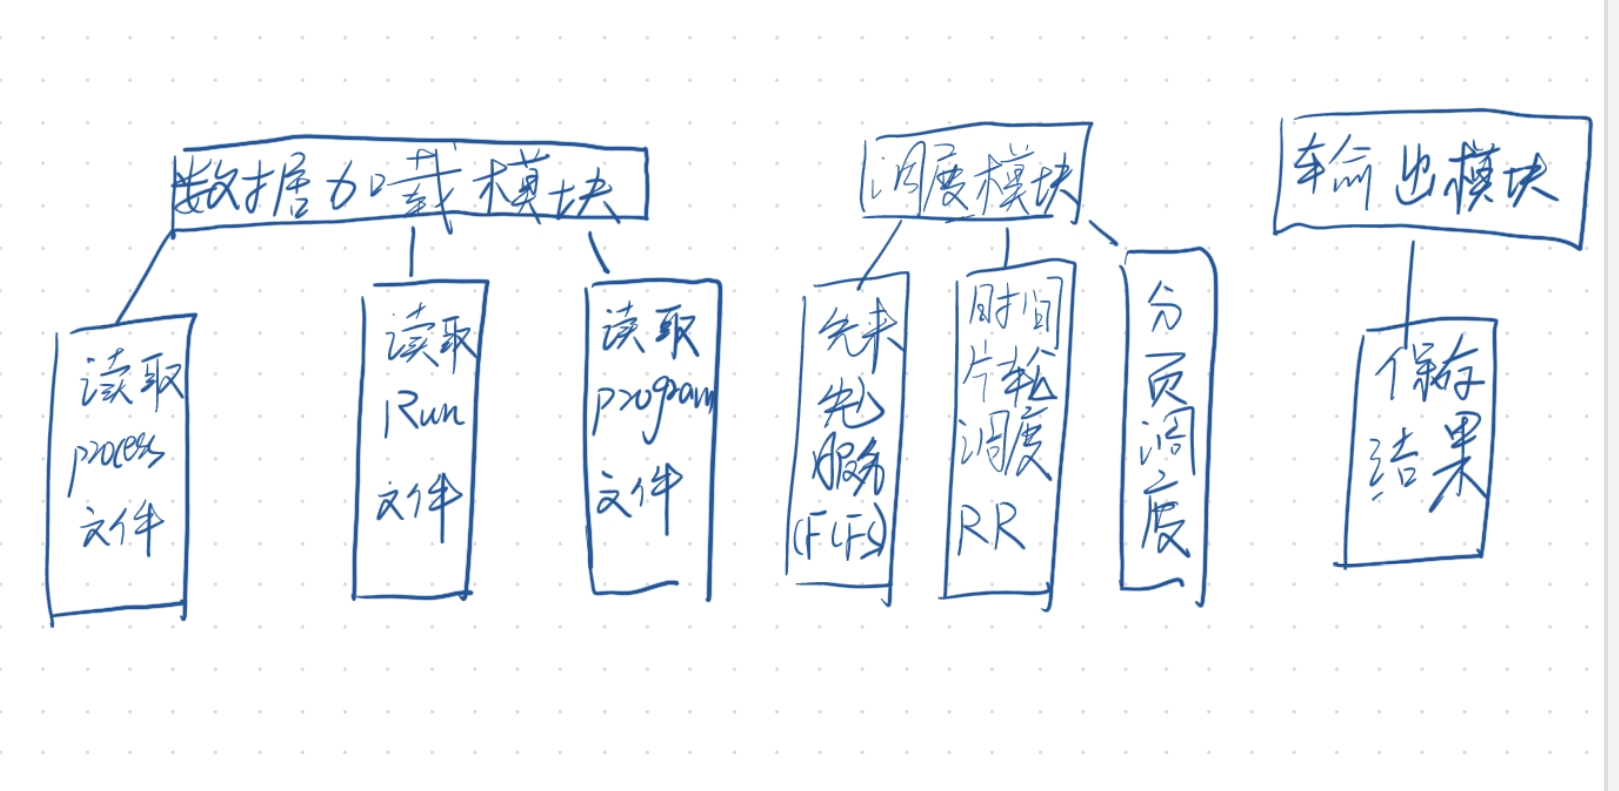 数据加载模块
读取
process
文件
读取
Run
文件
读取
program
文件
调度模块
先来
先
服务
(FCFS)
时间
片轮
调度
RR
分
页
调
度
输出模块
保存
结果